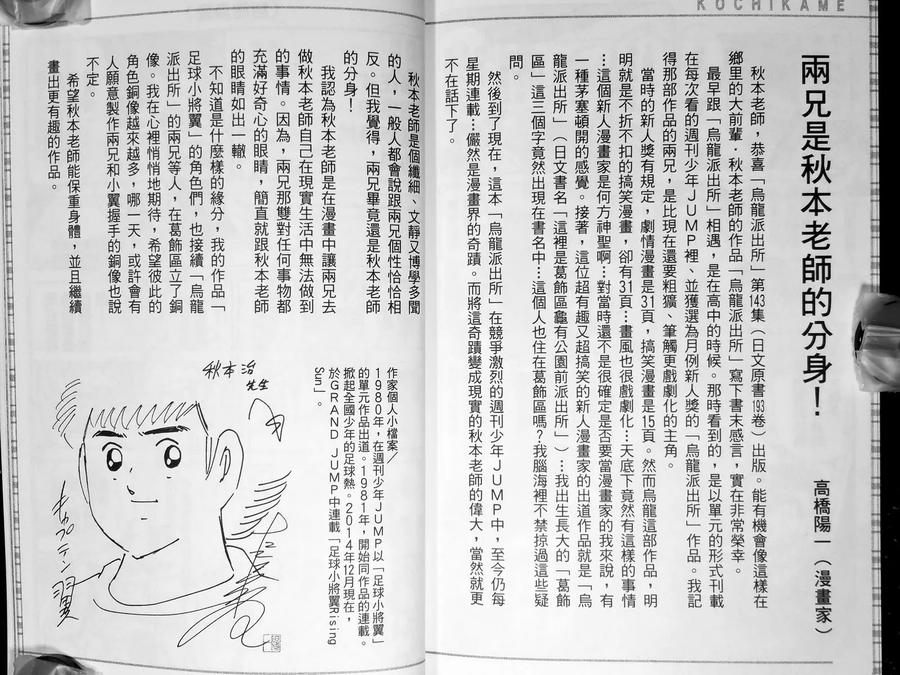 KOCHIKAME
兩兄是秋本老師的分身！
高橋陽一（漫畫家）
秋本老師，恭喜「烏龍派出所」第143集（日文原書193卷）出版。能有機會像這樣在
鄉里的大前輩．秋本老師的作品「烏龍派出所」寫下書末感言，實在非常榮幸。
最早跟「烏龍派出所」相遇，是在高中的時候。那時看到的，是以單元的形式刊載
在每次看的週刊少年ＪＵＭＰ裡、並獲選為月例新人獎的「烏龍派出所」作品。我記
得那部作品的兩兄，是比現在還要粗獷、筆觸更戲劇化的主角。
當時的新人獎有規定，劇情漫畫是31頁，搞笑漫畫是15頁。然而烏龍這部作品，明
明就是不折不扣的搞笑漫畫，卻有31頁…畫風也很戲劇化…天底下竟然有這樣的事情
…這個新人漫畫家是何方神聖啊…對當時還不是很確定是否要當漫畫家的我來說，有
一種茅塞頓開的感覺。接著，這位超有趣又超搞笑的新人漫畫家的出道作品就是「烏
龍派出所」（日文書名「這裡是葛飾區龜有公園前派出所」）…我出生長大的「葛飾
區」這三個字竟然出現在書名中…這個人也住在葛飾區嗎？我腦海裡不禁掠過這些疑
問。
然後到了現在，這本「烏龍派出所」在競爭激烈的週刊少年ＪＵＭＰ中，至今仍每
星期連載…儼然是漫畫界的奇蹟。而將這奇蹟變成現實的秋本老師的偉大，當然就更
不在話下了。
秋本老師是個纖細、文靜又博學多聞
的人，一般人都會說跟兩兄個性恰恰相
反。但我覺得，兩兄畢竟還是秋本老師
的分身！
我認為秋本老師是在漫畫中讓兩兄去
做秋本老師自己在現實生活中無法做到
的事情。因為，兩兄那雙對任何事物都
充滿好奇心的眼睛，簡直就跟秋本老師
的眼睛如出一轍。
不知道是什麼樣的緣分，我的作品「
足球小將翼」的角色們，也接續「烏龍
派出所」的兩兄等人，在葛飾區立了銅
像。我在心裡悄悄地期待，希望彼此的
角色銅像越來越多，哪一天，或許會有
人願意製作兩兄和小翼握手的銅像也說
不定。
希望秋本老師能保重身體，並且繼續
畫出更有趣的作品。
作家個人小檔案／
1980年，在週刊少年ＪＵＭＰ以「足球小將翼」
的單元作品出道。1981年，開始同作品的連載。
掀起全國少年的足球熱。2014年12月現在，
於GRAND JUMP中連載「足球小將翼Rising
Sun」。
秋本治
先生
キャプテン翼